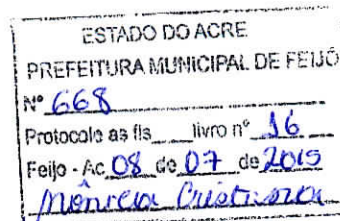 ESTADO DO ACRE
PREFEITURA MUNICIPAL DE FEIJÓ
Nº 668
Protocolo as fls ____ livro nº 16
Feijo - Ac 08 de 07 de 2015